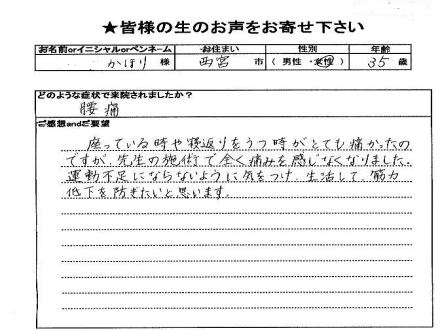 ★皆様の生のお声をお寄せ下さい
お名前orイニシャルorペンネーム お住まい 性別 年齢
かほり 様 西宮 市 (男性・女性) 35 歳
どのような症状で来院されましたか?
腰痛
ご感想andご要望
座っている時や寝返りをうつ時がとても痛かったの
ですが、先生の施術で全く痛みを感じなくなりました。
運動不足にならないように気をつけ、生活して、筋力
低下を防ぎたいと思います。